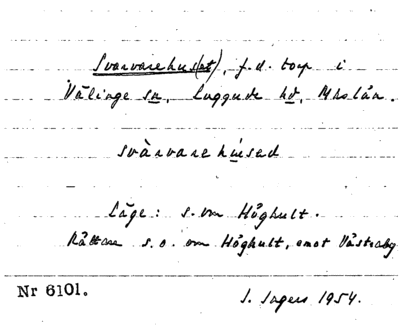 Svarvarehus(et), f.d. torp i
Välinge sn, Luggude hd, Mhs län.
svàrvarehùsed
Läge: s. om Höghult.
Rättare s.o. om Höghult, emot Västraby
Nr 6101.
S. Ingers 1954.